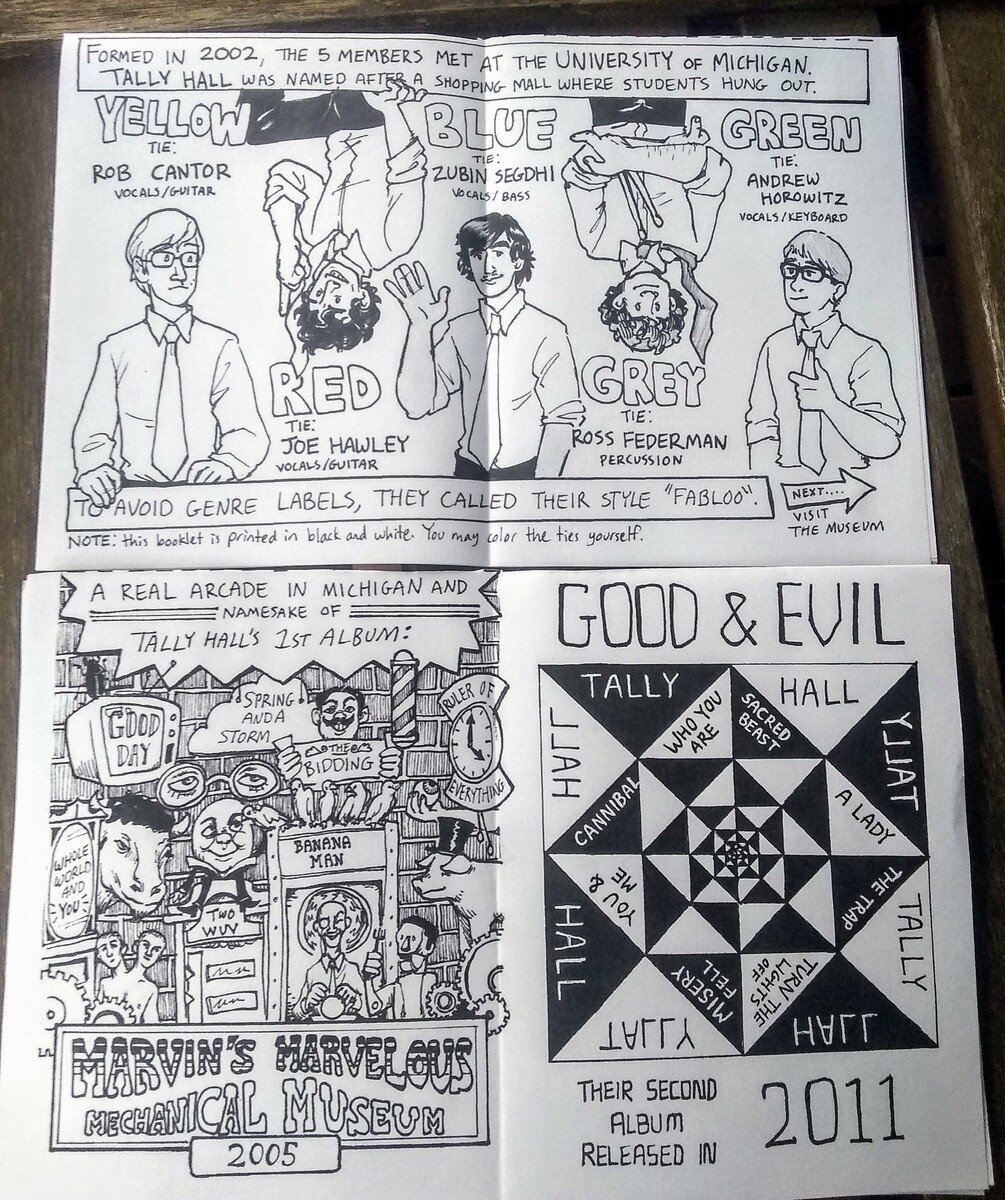 FORMED IN 2002, THE 5 MEMBERS MET AT THE UNIVERSITY OF MICHIGAN.
TALLY HALL WAS NAMED AFTER A SHOPPING MALL WHERE STUDENTS HUNG OUT.
YELLOW
TIE:
ROB CANTOR
VOCALS/GUITAR
BLUE
TIE:
ZUBIN SEGDHI
VOCALS/BASS
GREEN
TIE:
ANDREW
HOROWITZ
VOCALS/KEYBOARD
RED
TIE:
JOE HAWLEY
VOCALS/GUITAR
GREY
TIE:
ROSS FEDERMAN
PERCUSSION
TO AVOID GENRE LABELS, THEY CALLED THEIR STYLE "FABLOO".
NEXT....
VISIT
THE MUSEUM
NOTE: this booklet is printed in black and white. You may color the ties yourself.
A REAL ARCADE IN MICHIGAN AND
NAMESAKE OF
TALLY HALL'S 1ST ALBUM:
GOOD
DAY
SPRING
AND A
STORM
THE
BIDDING
RULER OF
EVERYTHING
WHOLE
WORLD
AND
YOU
BANANA
MAN
TWO
WUV
MARVIN'S MARVELOUS
MECHANICAL MUSEUM
2005
GOOD & EVIL
TALLY
HALL
TALLY
HALL
TALLY
HALL
TALLY
HALL
WHO YOU
ARE
SACRED
BEAST
A LADY
THE TRAP
TURN THE
LIGHTS
OFF
MISERY
FELL
YOU &
ME
CANNIBAL
THEIR SECOND
ALBUM
RELEASED IN
2011